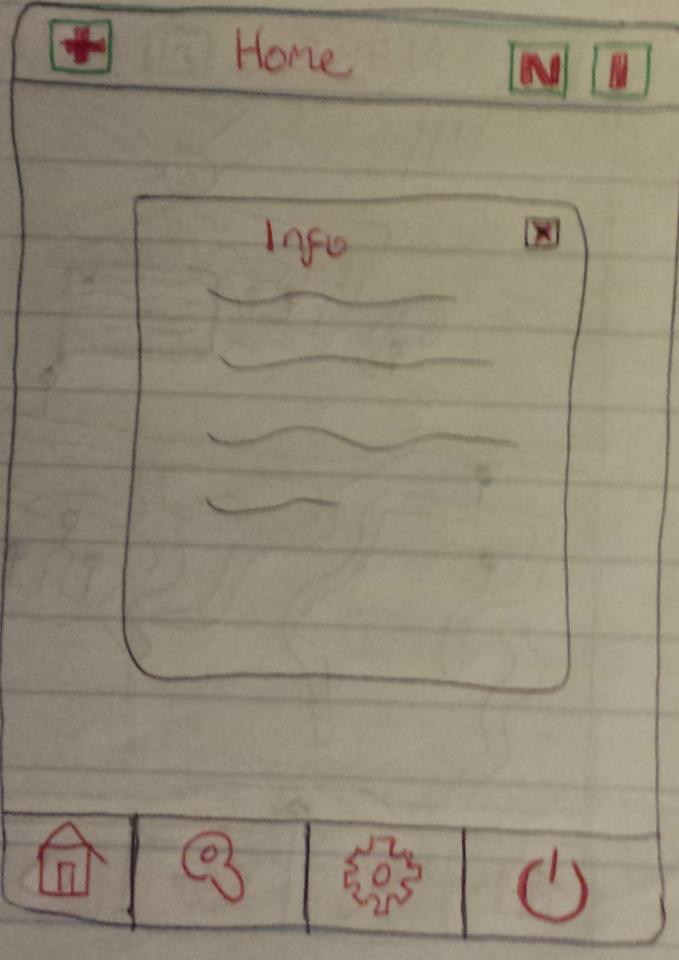 + Home N I
Info x